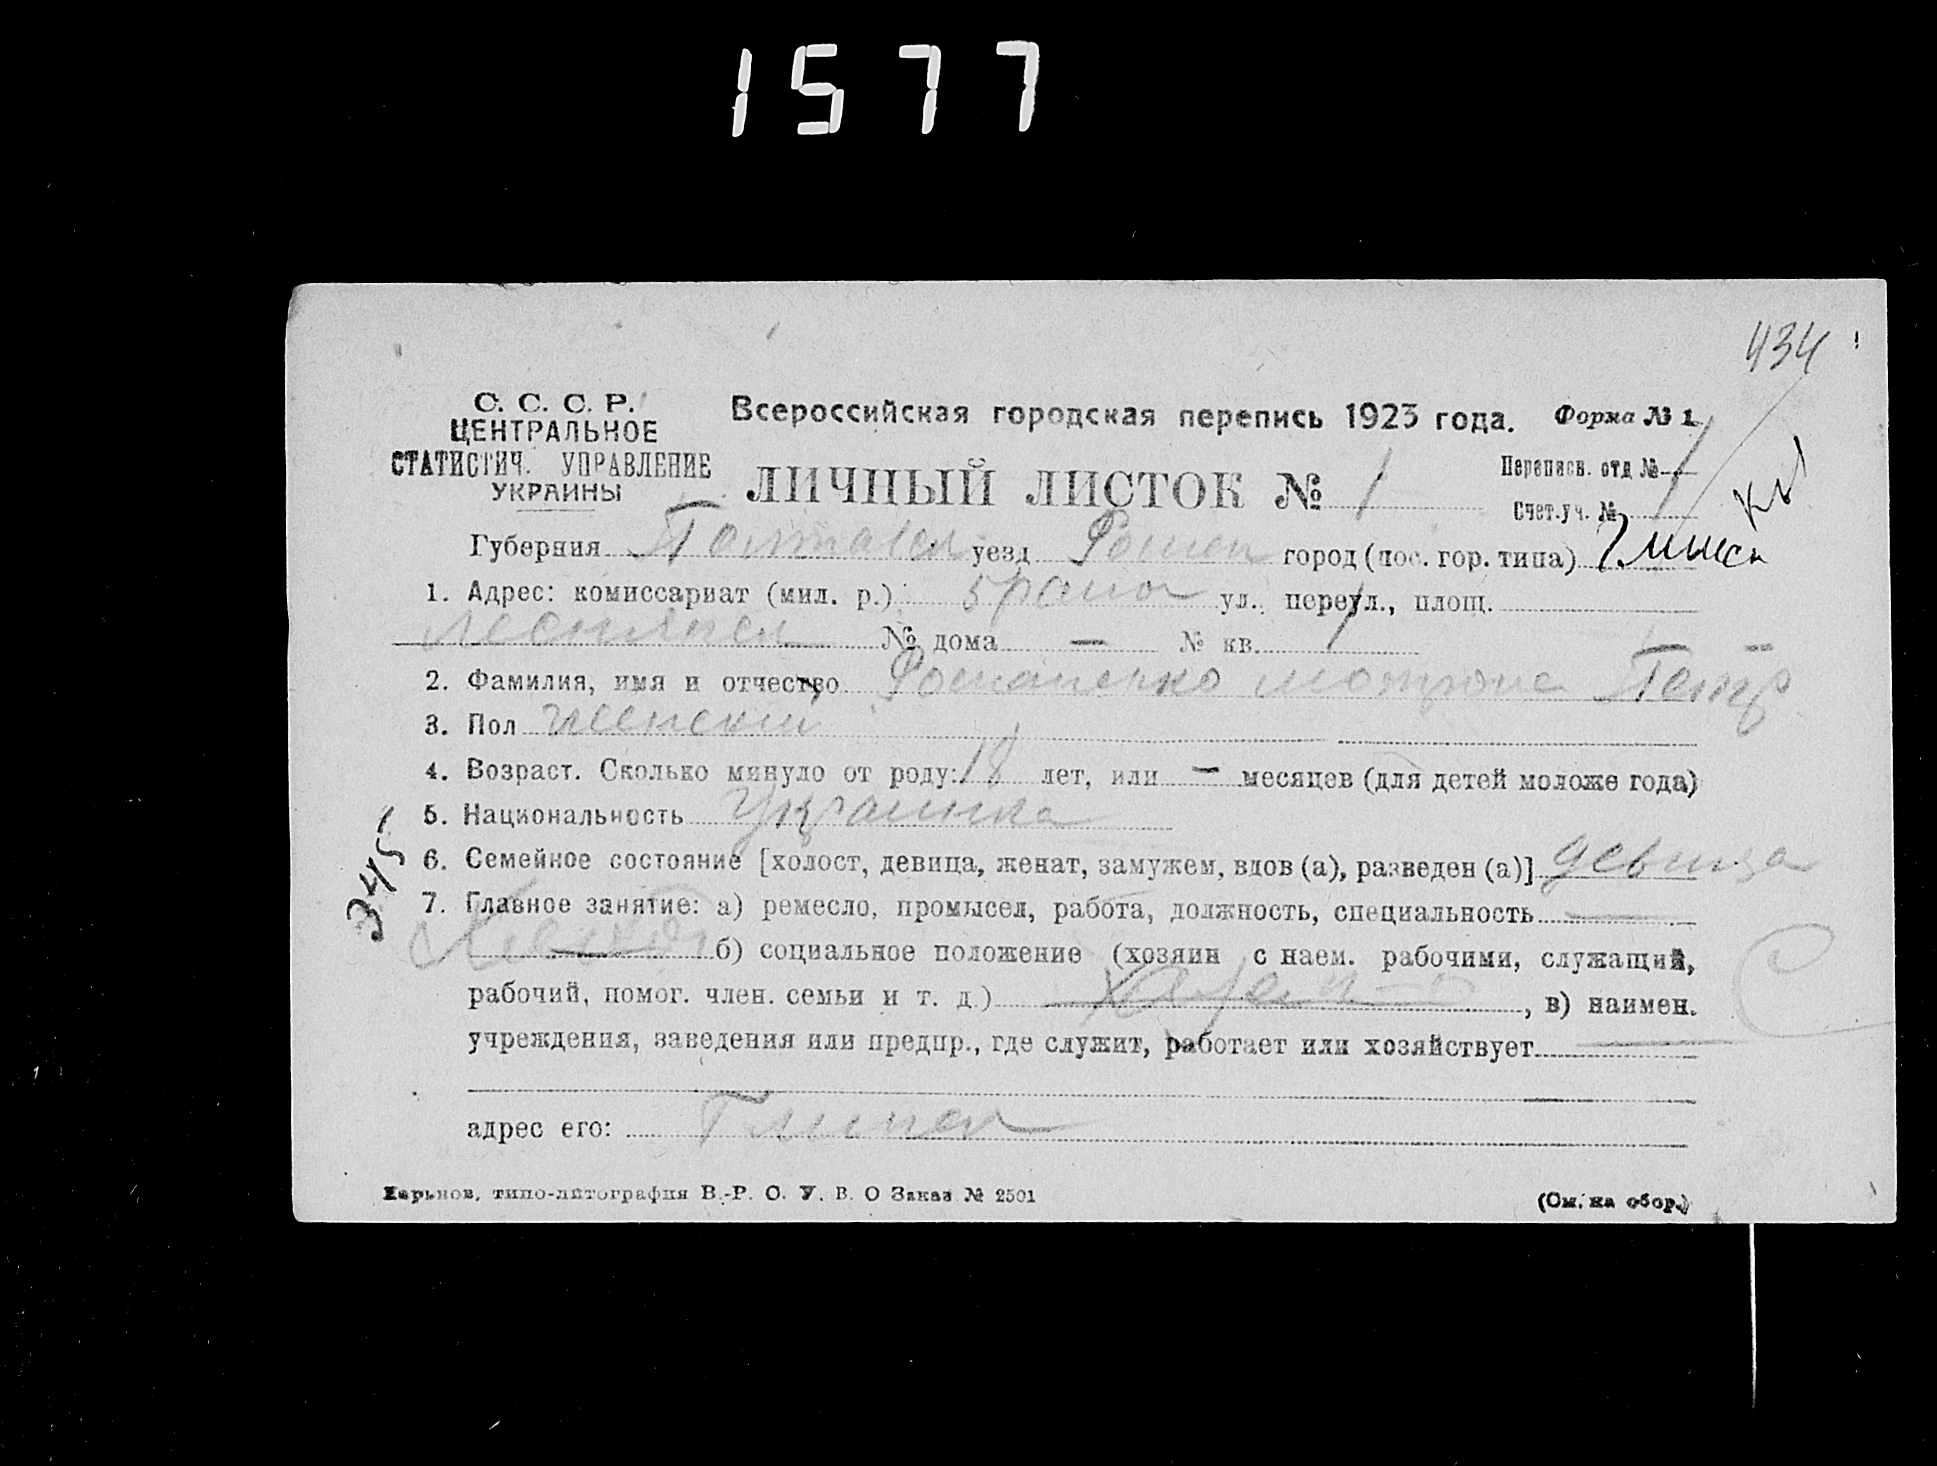 1577
434
С. С. С. Р.
ЦЕНТРАЛЬНОЕ
СТАТИСТИЧ. УПРАВЛЕНИЕ
УКРАИНЫ
Всероссийская городская перепись 1923 года. Форма № 1.
ЛИЧНЫЙ ЛИСТОК № 1
Переписн. отд № 1
Счет. уч. № 1
Губерния Полтавск уезд Ромен город (пос. гор. типа) Глинск
1. Адрес: комиссариат (мил. р.) 5 района ул., переул., площ.
№ дома — № кв. 1
2. Фамилия, имя и отчество Романенко Мотрона Петр
3. Пол женский
4. Возраст. Сколько минуло от роду: 18 лет, или — месяцев (для детей моложе года)
5. Национальность Украинка
6. Семейное состояние [холост, девица, женат, замужем, вдов (а), разведен (а)] девица
345
7. Главное занятие: а) ремесло, промысел, работа, должность, специальность —
б) социальное положение (хозяин с наем. рабочими, служащий,
рабочий, помог. член. семьи и т. д.) , в) наимен.
учреждения, заведения или предпр., где служит, работает или хозяйствует —
адрес его: Глинск
Харьков, типо-литография В.-Р. О. У. В. О Заказ № 2501
(См. на обор.)